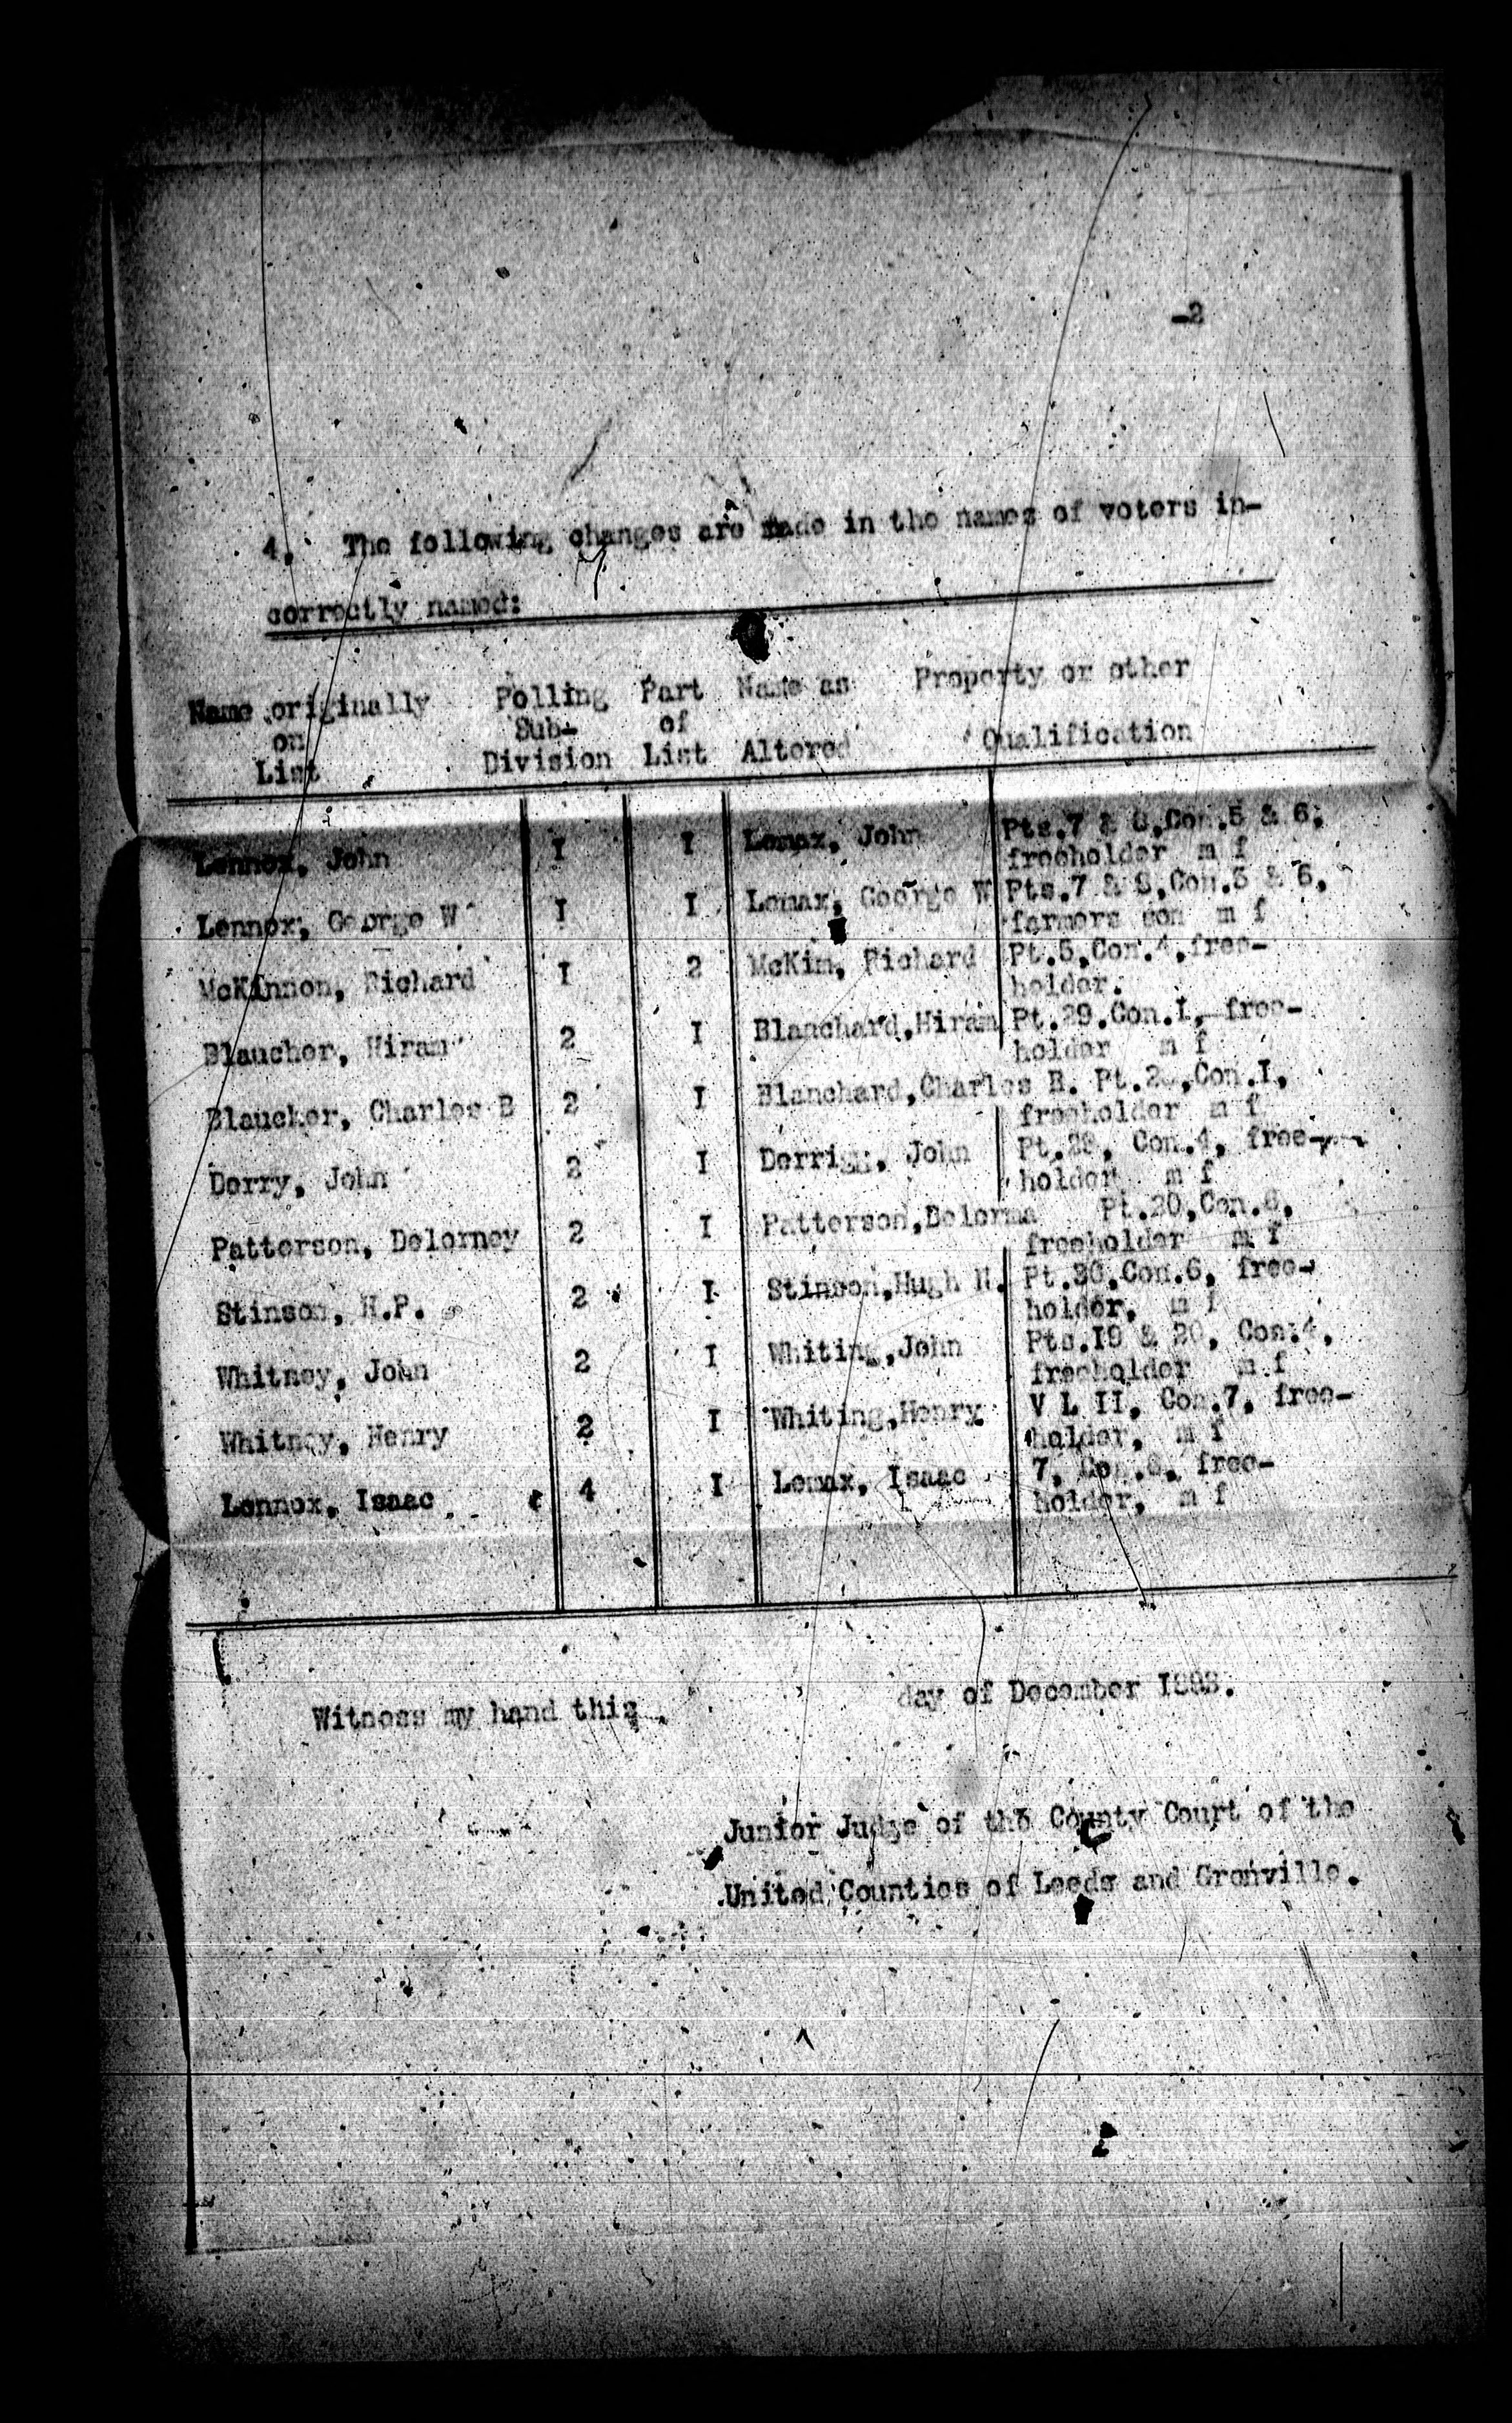 -2
4. The following changes are made in the names of voters in-
correctly named:
Name originally Polling Part Name as Property or other
on Sub- of
List Division List Altered Qualification
Lennox, John I I Lomax, John Pts.7 & 8,Con.5 & 6,
freeholder m f
Lennox, George W I I Lomax, George W Pts.7 & 8,Con.5 & 6,
farmers son m f
McKinnon, Richard I 2 McKim, Richard Pt.5,Con.4,free-
holder.
Blaucher, Hiram 2 I Blanchard,Hiram Pt.29.Con.I, free-
holder m f
Blaucher, Charles B 2 I Blanchard,Charles B. Con.I,
freeholder m f
Derry, John 2 I John Pt.28, Con.4, free-
holder m f
Patterson, Delorney 2 I Patterson,Delorma Pt.20,Con.6,
freeholder m f
Stinson, H.P. 2 I Stinson,Hugh N. Pt.30,Con.6, free-
holder, m f
Whitney, John 2 I Whiting,John Pts.I9 & 20, Con.4,
freeholder m f
Whitney, Henry 2 I Whiting,Henry V L II, Con.7, free-
holder, m f
Lennox, Isaac 4 I Lomax, Isaac 7, free-
holder, m f
Witness my hand this day of December
Junior Judge of the County Court of the
United Counties of Leeds and Grenville.